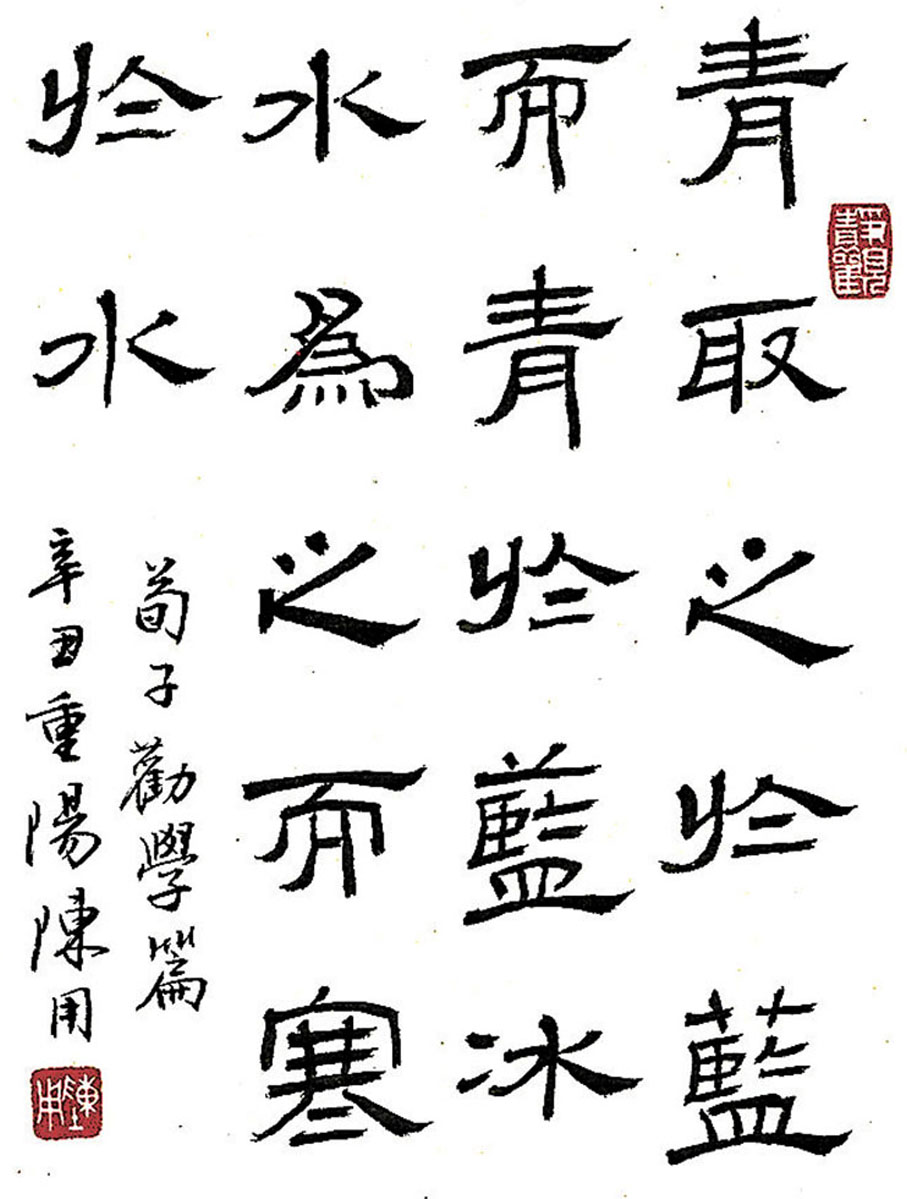 靜觀
青取之於藍
而青於藍冰
水為之而寒
於水
荀子勸學篇
辛丑重陽陳用
陳用